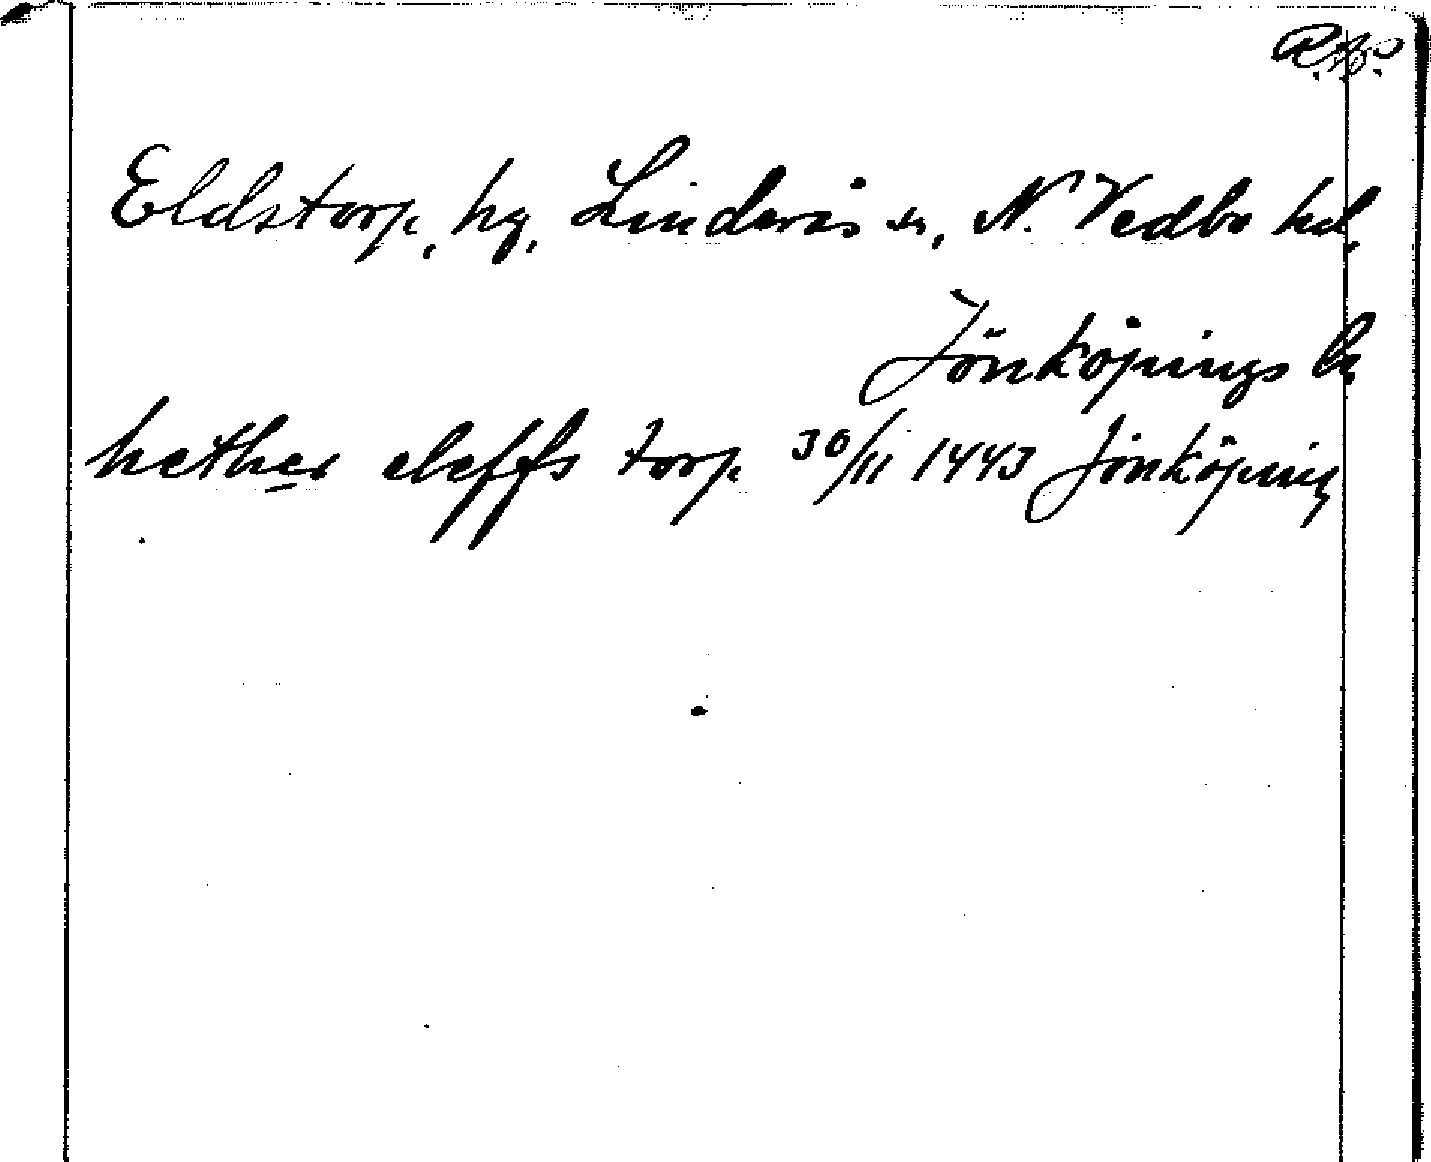 R.A.P.
Eldstorp, hg, Linderås sn, N. Vedbo hd,
Jönköpings l.
hether eleffs torp 30/11 1443 Jönköping